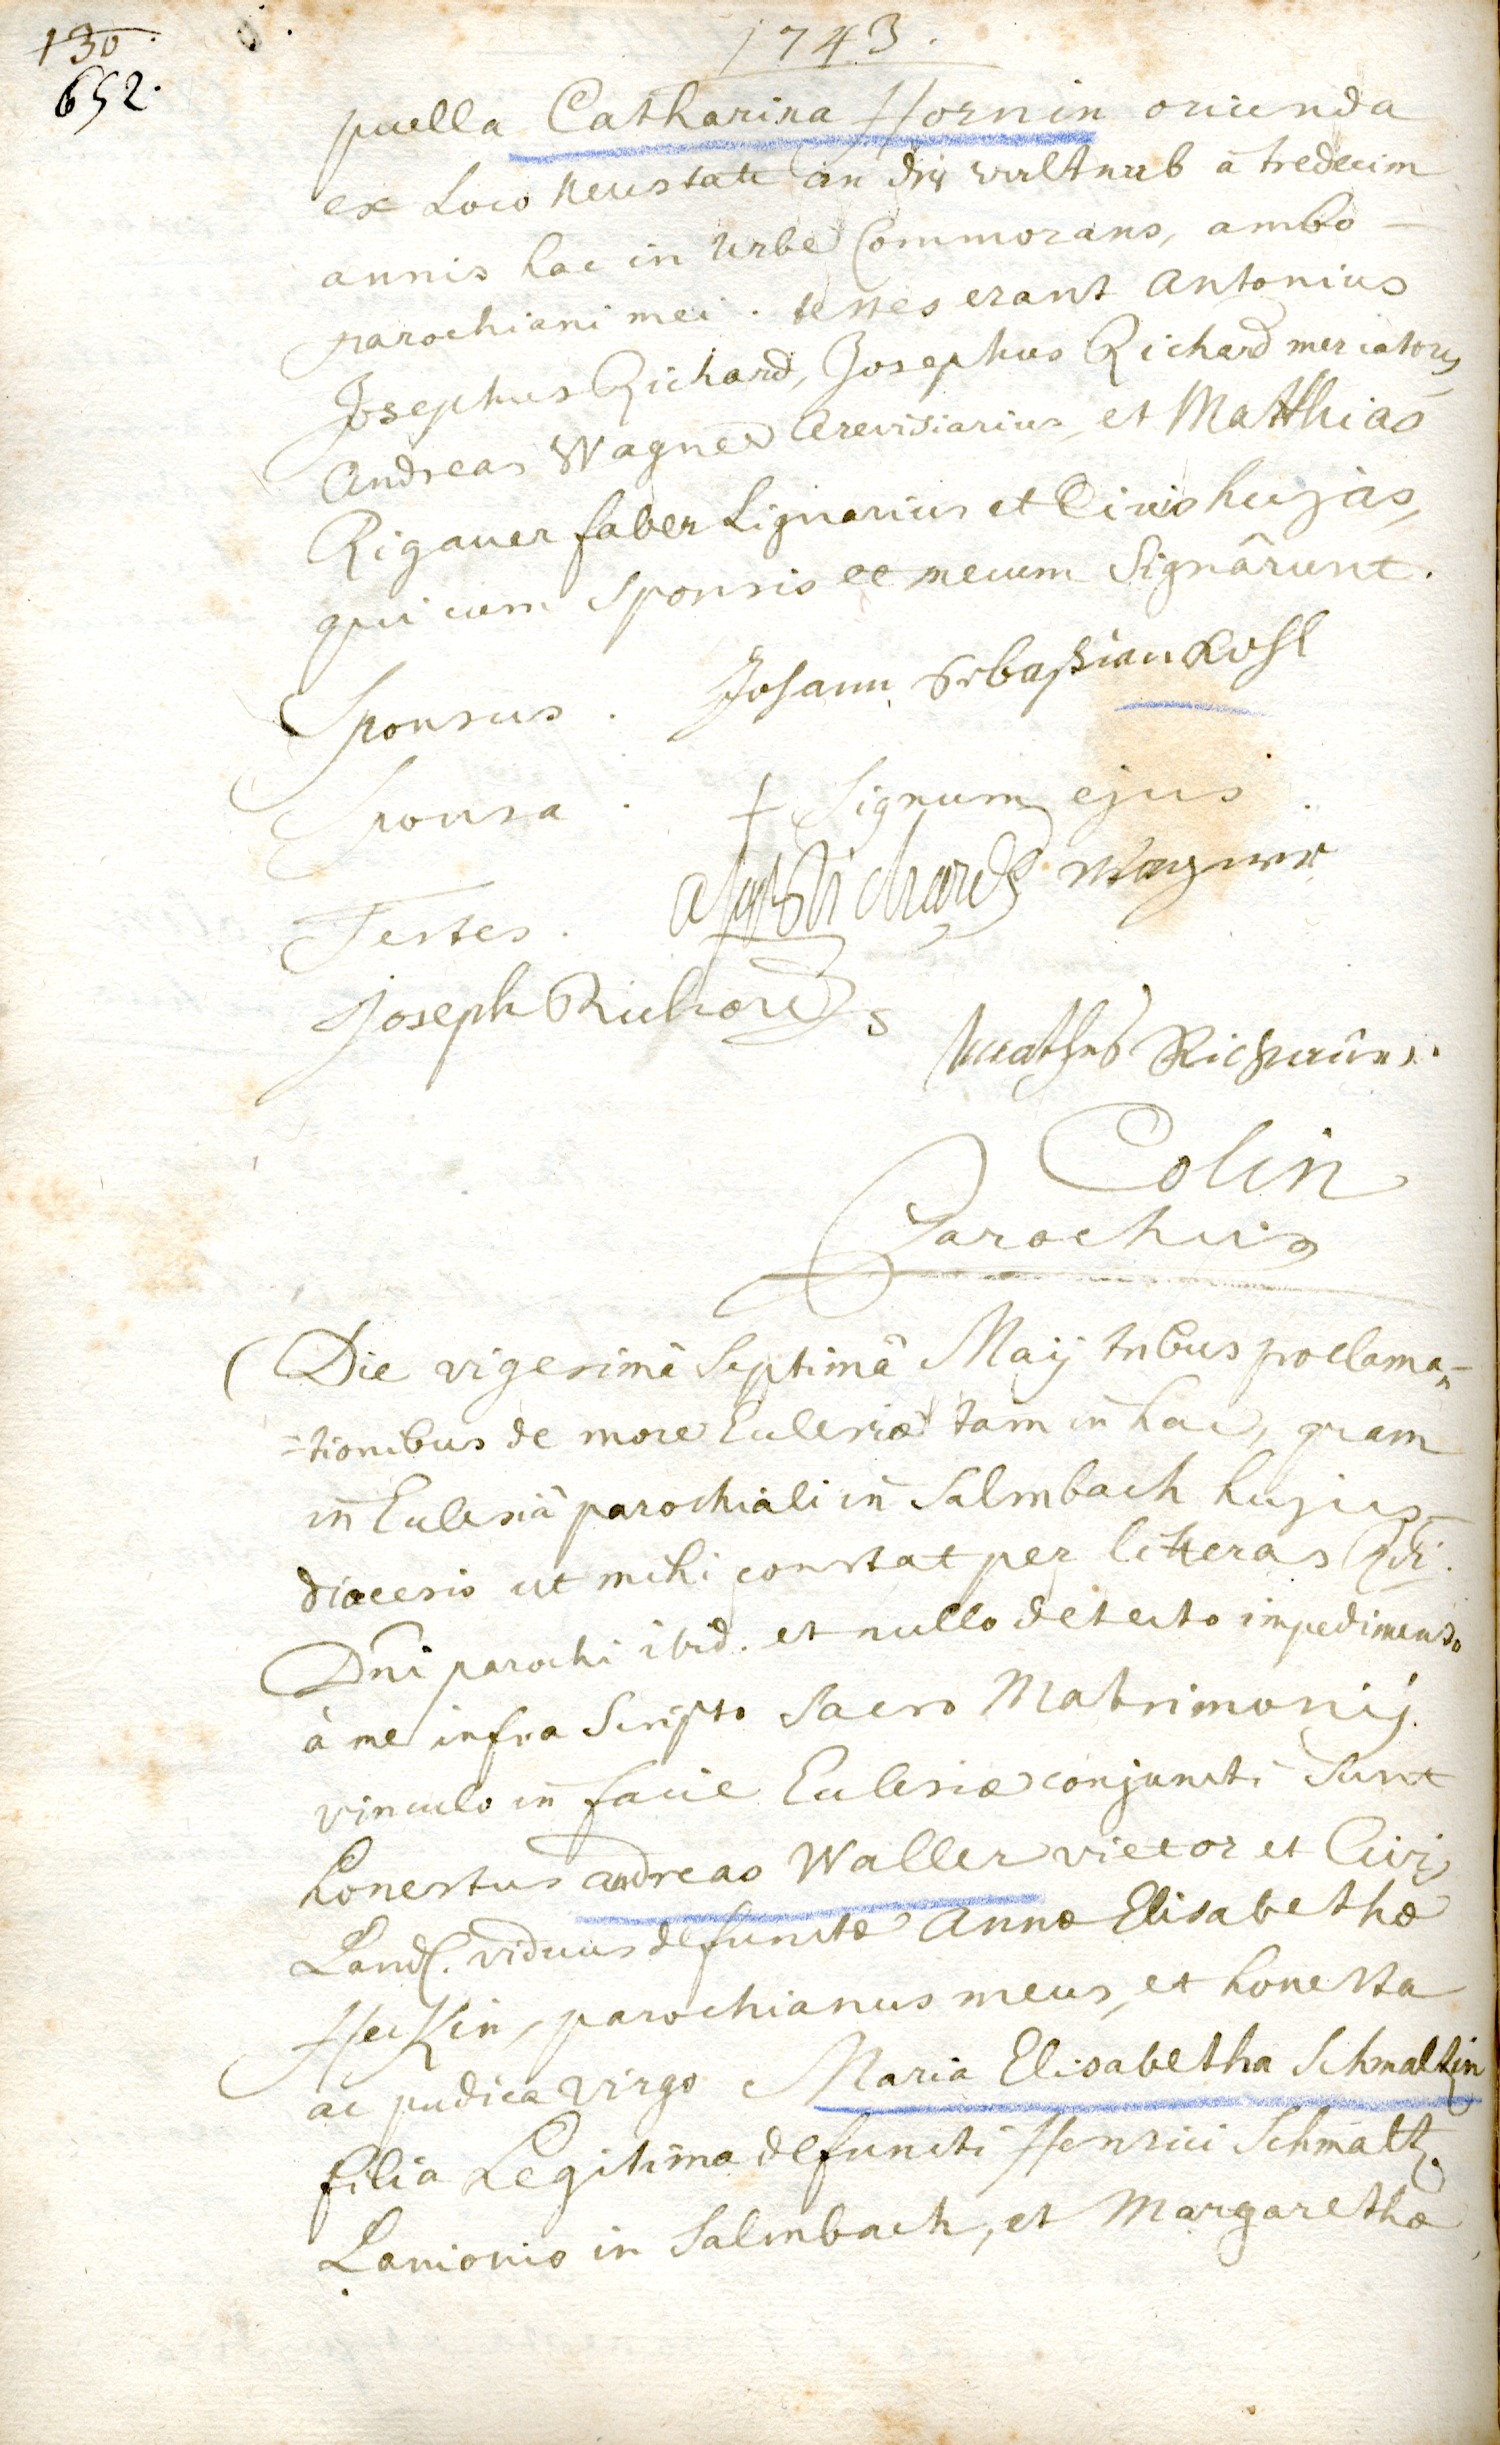 130.
652.
1743.
puella Catharina Hornin oriunda
ex Loco Neustatt an der waltnab à tredecim
annis hac in Urbe Commorans, ambo
parochiani mei. testes erant Antonius
Josephus Richard, Josephus Richard mercatores
Andreas Wagner Cerevisiarius et Matthias
Rigauer faber Lignarius et Civis hujas,
qui cum Sponsis et mecum Signârunt.
Sponsus. Johann Sebastian Kohl
Sponsa. + Signum ejus
Testes. Richards Wagner
Joseph Richard
Colin
Parochus
Die vigesimâ Septimâ Maij tribus proclama=
=tionibus de more Eclesiæ tam in hac, quam
in Eclesiâ parochiali in Salmbach hujus
diœcesis ut mihi constat per litteras Rdi.
Dni parochi ibid. et nullo detecto impedimento
à me infra Scripto Sacro Matrimonij
vinculo in facie Eclesiæ conjuncti Sunt
honestus andreas Waller vietor et Civis
Land. viduus defunctæ Annæ Elisabethæ
Heckin, parochianus meus, et honesta
ac pudica virgo Maria Elisabetha Schmaltzin
filia Legitima defuncti Henrici Schmaltz
Lanionis in Salmbach, et Margarethæ